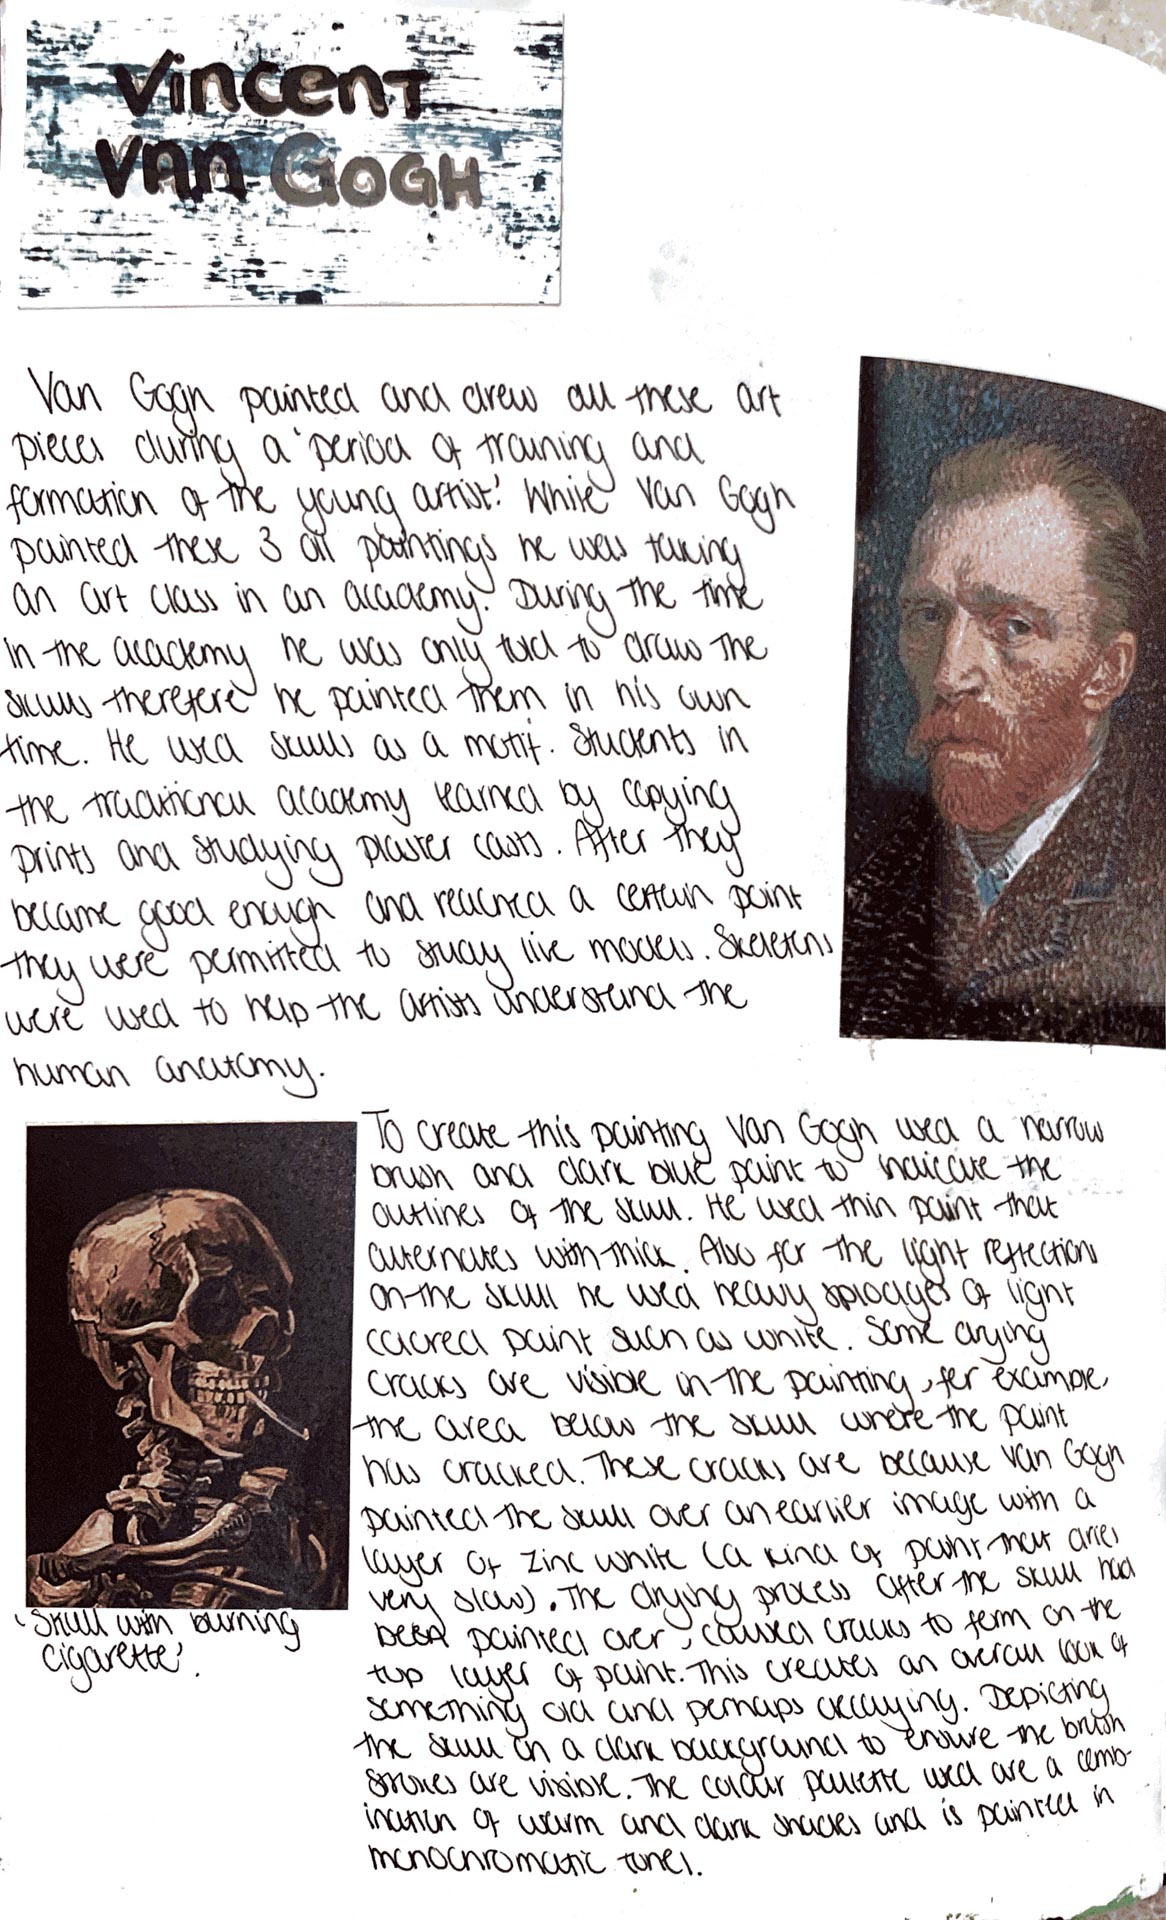 Vincent
Van Gogh
Van Gogh painted and drew all these art
pieces during a 'period of training and
formation of the young artist.' While Van Gogh
painted these 3 oil paintings he was taking
an art class in an academy. During the time
in the academy he was only told to draw the
skulls therefore he painted them in his own
time. He used skulls as a motif. Students in
the traditional academy learned by copying
prints and studying plaster casts. After they
became good enough and reached a certain point
they were permitted to study live models. Skeletons
were used to help the artists understand the
human anatomy.
To create this painting Van Gogh used a narrow
brush and dark blue paint to indicate the
outlines of the skull. He used thin paint that
alternates with thick. Also for the light reflections
on the skull he used heavy splodges of light
colored paint such as white. Some drying
cracks are visible in the painting, for example,
the area below the skull where the paint
has cracked. These cracks are because Van Gogh
painted the skull over an earlier image with a
layer of zinc white (a kind of paint that dries
very slow). The drying process after the skull had
been painted over, caused cracks to form on the
top layer of paint. This creates an overall look of
something old and perhaps decaying. Depicting
the skull on a dark background to ensure the brush
strokes are visible. The colour palette used are a comb-
ination of warm and dark shades and is painted in
monochromatic tones.
'Skull with burning
cigarette'.